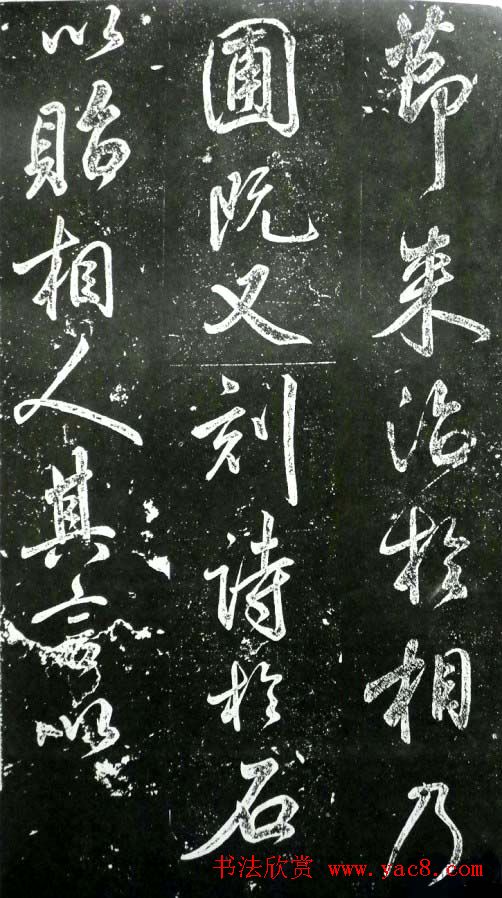 節来治於相乃
圃既又刻詩於石
以貽相人其言以
书法欣赏 www.yac8.com